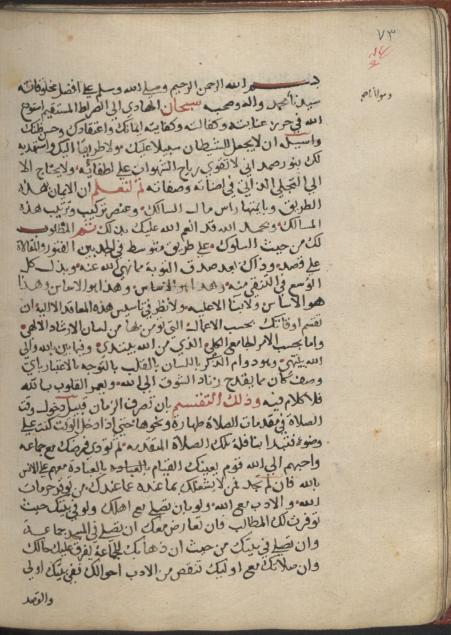 ٧٣
بسم الله الرحمن الرحيم وصلى الله وسلم على افضل مخلوقاته
سيدنا محمد واله وصحبه سبحان الهادي الى الصراط المستقيم استودع
الله في حرز عنايته وكفالته وكفايته ايمانك واعتقادك وحسن ظنك
واسيله ان لا يجعل للشيطان سبيلا عليك ولا طريقا اليك واستمد به
لك بنور صمداني لا تقوى رياح الشهوات على اطفائه ولا يحتاج الا
الى التجلي الذاتي في اضاته وصفاته ثم لتعلم ان الايمان هذه
الطريق وبابتها راس مال السالك وعنصر تركيب وترتيب هذه
المسالك وبحمد الله قد انعم الله عليك بذلك نعم المطلوب
لك من حيث السلوك على طريق متوسط في الحد بين الفتور والمغالاة
على قصد وذاك بعد صدق التوبة مما نهى الله عنه وبذل كل
الوسع في التنقي منه وهذا بوالاساس وهذا بوالاساس وهذا
هو الاساس ولا بنا الا عليه ولا نظر في تاسيس هذه المعاقد الا اليه ان
تقسم اوقاتك بحسب الاعمال التي تومر بها من لسان الارشاد الالهي
واما بحسب الامر الجامع الكلي الذي من الله يبتدي وفيما بين بالله والى
الله ينتهي وهو دوام الذكر باللسان بالقلب بالتوجه بالاعتبار باي
وصف كان مما يقدح زناد الشوق الى الله ويعمر القلوب بالله
فلا كلام فيه وذلك التقسيم بان تصرف الزمان قبيل دخول وقت
الصلاة في مقدمات الصلاة طهارة ونحوها حتى اذا دخل الوقت كنت على
وضوء فتبدا بنافلة تلك الصلاة المتقدمة ثم تودي فرضك مع جماعة
واحبهم الى الله قوم يعينك القيام بالعبادة معهم على الانس
بالله فان لم تجد فمن لا يشغلك بما عنده عما عندك من توقير حرمات
الله والادب مع الله ولو بان تصلي مع اهلك ولو في بيتك حيث
توفرت لك المطالب فان تعارض معك ان تصلي في المسجد جماعة
وان تصلي في بيتك من حيث ان ذهابك للجماعة يفرق عليك حالك
وان صلاتك مع اوليك تنقص من الادب احوالك ففي بيتك اولى
والقصد